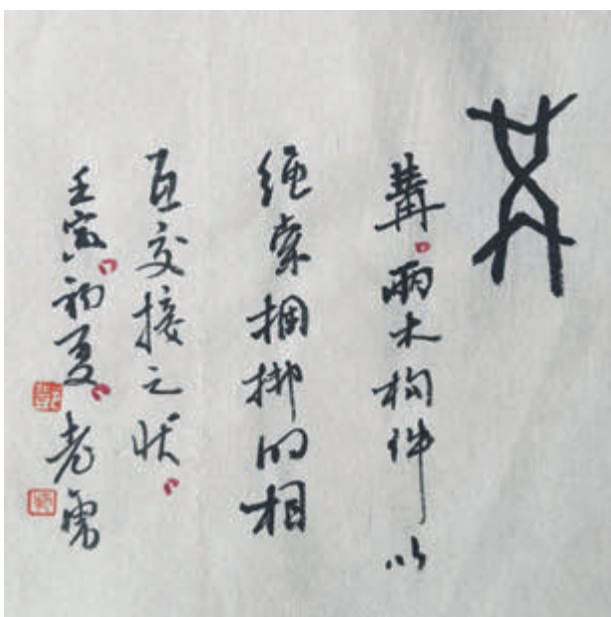 冓。两木构件以
绳索捆绑的相
互交接之状。
壬寅。初夏。老勇